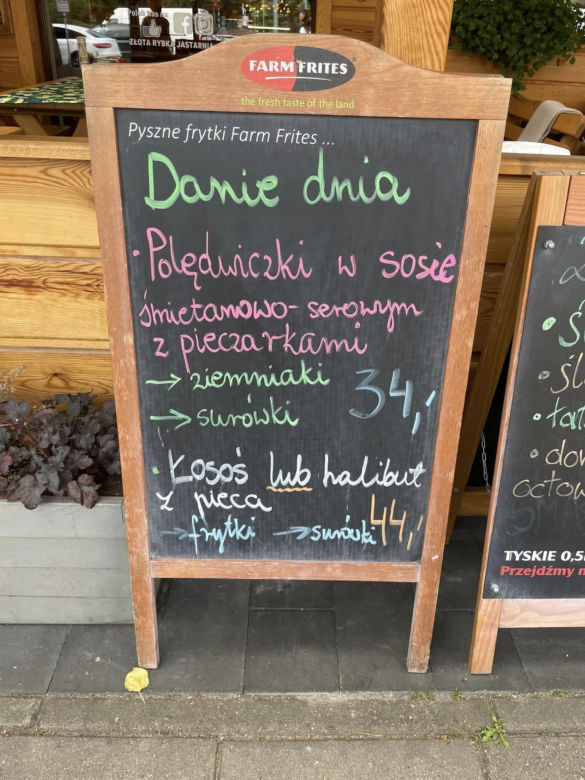 ZŁOTA RYBKA JASTARNIA
FARM FRITES
the fresh taste of the land
Pyszne frytki Farm Frites ...
Danie dnia
• Polędwiczki w sosie
śmietanowo-serowym
z pieczarkami
→ ziemniaki 34,-
→ surówki
• Łosoś lub halibut
z pieca
→ frytki → surówki 44,-
octow
TYSKIE 0,5
Przejdźmy n